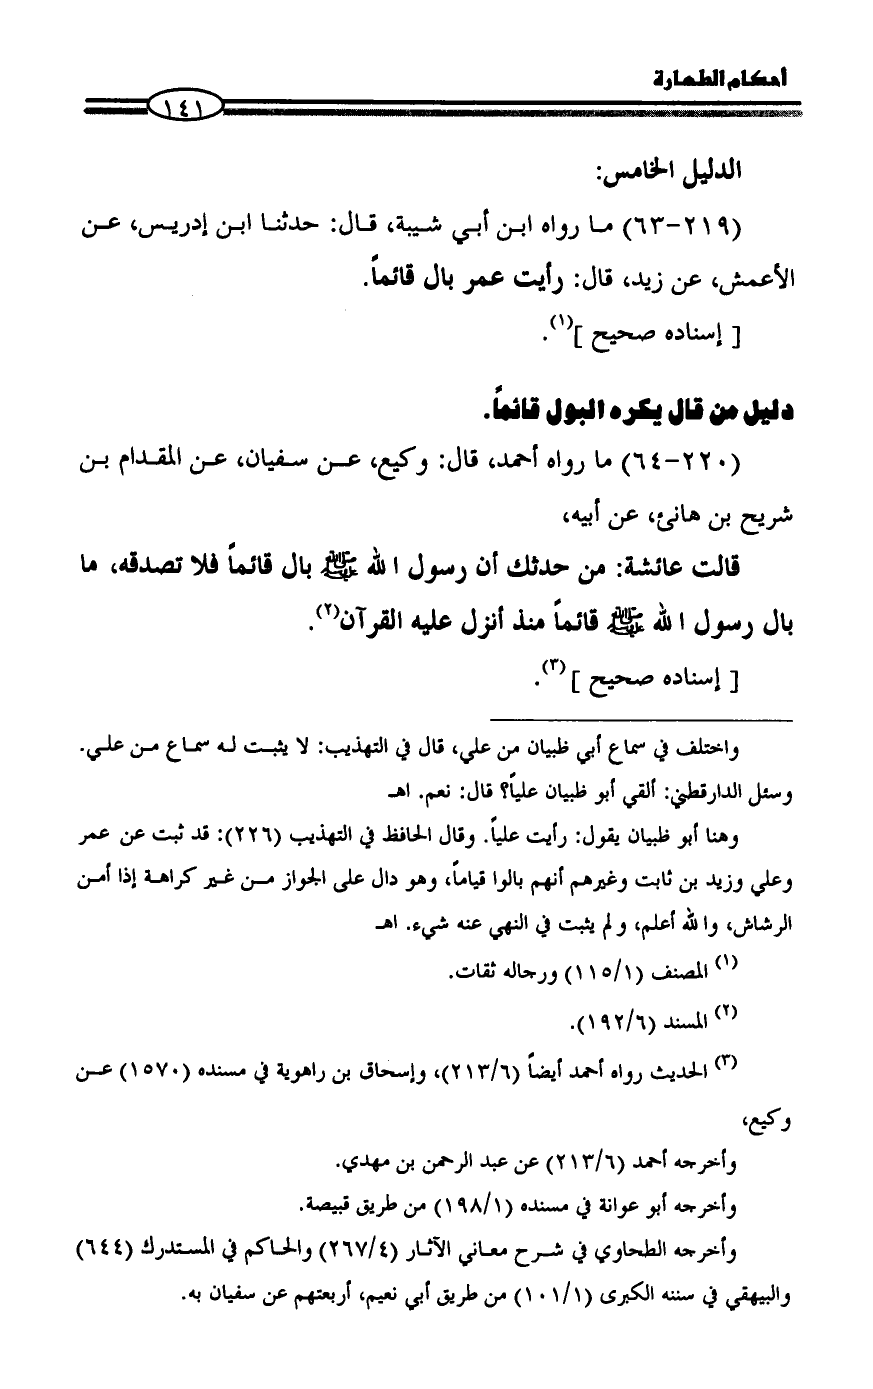 أحكام الطهارة
١٤١
الدليل الخامس:
(٢١٩-٦٣) ما رواه ابن أبي شيبة، قال: حدثنا ابن إدريس، عن
الأعمش، عن زيد، قال: رأيت عمر بال قائماً.
[ إسناده صحيح ](١).
دليل من قال يكره البول قائماً.
(٢٢٠-٦٤) ما رواه أحمد، قال: وكيع، عن سفيان، عن المقدام بن
شريح بن هانئ، عن أبيه،
قالت عائشة: من حدثك أن رسول الله ﷺ بال قائماً فلا تصدقه، ما
بال رسول الله ﷺ قائماً منذ أنزل عليه القرآن(٢).
[ إسناده صحيح ](٣).
واختلف في سماع أبي ظبيان من علي، قال في التهذيب: لا يثبت له سماع من علي.
وسئل الدارقطني: ألقي أبو ظبيان علياً؟ قال: نعم. اهـ
وهنا أبو ظبيان يقول: رأيت علياً. وقال الحافظ في التهذيب (٢٢٦): قد ثبت عن عمر
وعلي وزيد بن ثابت وغيرهم أنهم بالوا قياماً، وهو دال على الجواز من غير كراهة إذا أمن
الرشاش، والله أعلم، ولم يثبت في النهي عنه شيء. اهـ
(١) المصنف (١١٥/١) ورجاله ثقات.
(٢) المسند (١٩٢/٦).
(٣) الحديث رواه أحمد أيضاً (٢١٣/٦)، وإسحاق بن راهوية في مسنده (١٥٧٠) عن
وكيع،
وأخرجه أحمد (٢١٣/٦) عن عبد الرحمن بن مهدي.
وأخرجه أبو عوانة في مسنده (١٩٨/١) من طريق قبيصة.
وأخرجه الطحاوي في شرح معاني الآثار (٢٦٧/٤) والحاكم في المستدرك (٦٤٤)
والبيهقي في سننه الكبرى (١٠١/١) من طريق أبي نعيم، أربعتهم عن سفيان به.